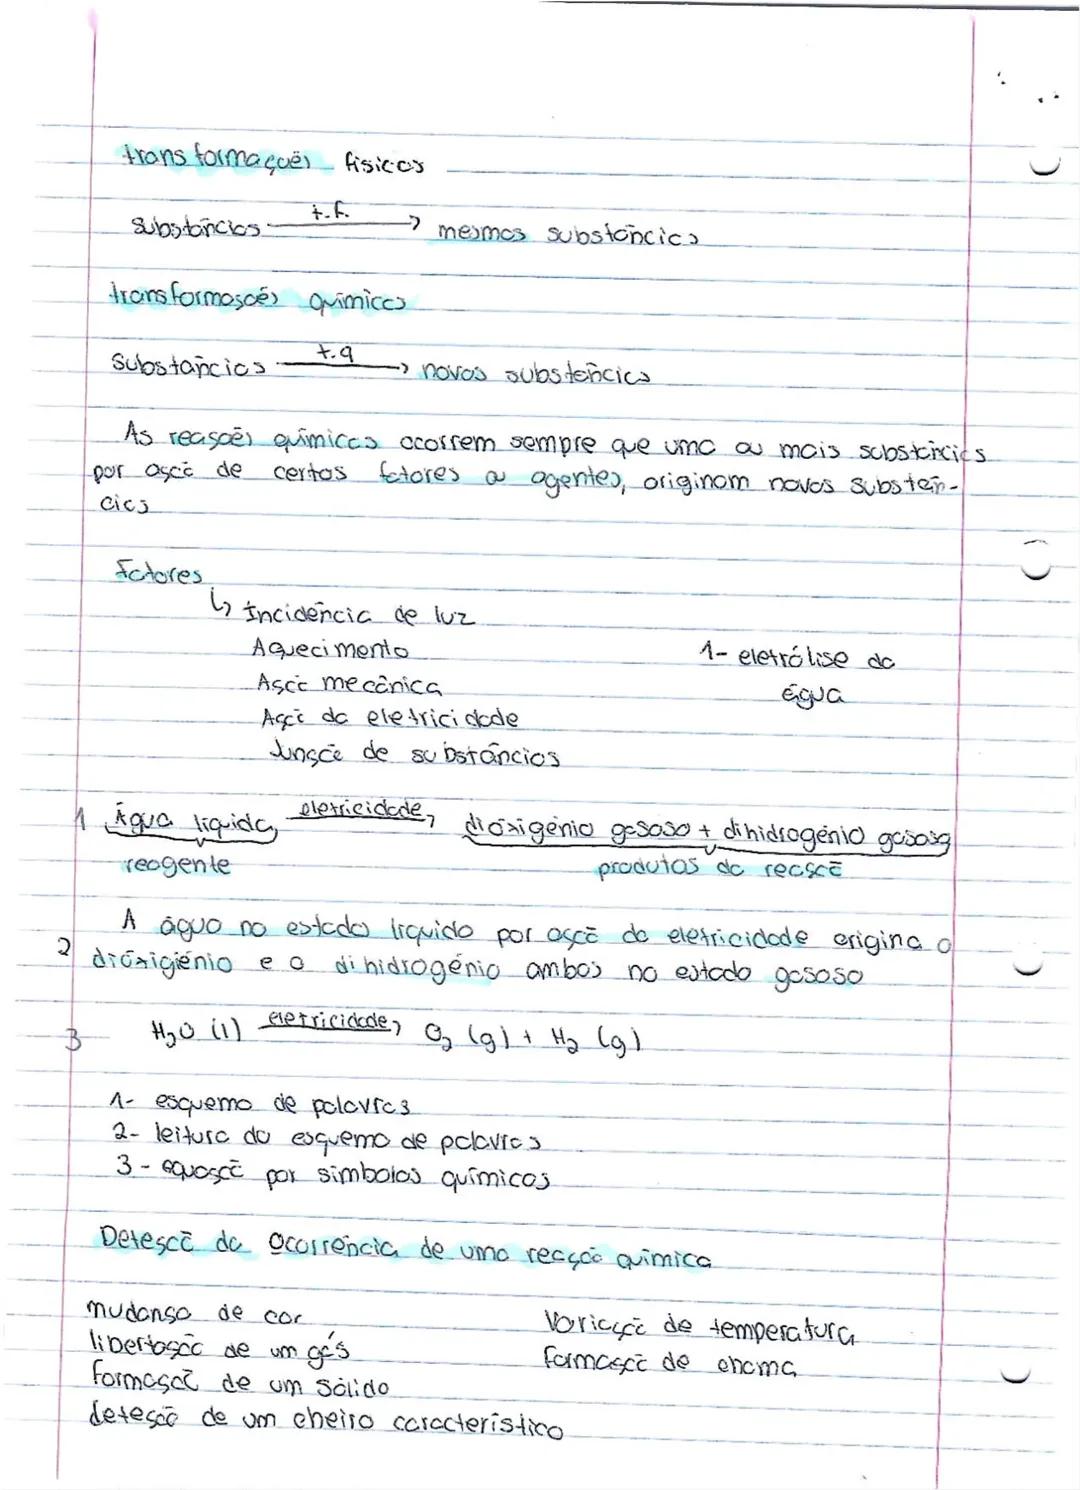 transformações físicas
substâncias t.f. → mesmas substâncias
transformações químicas
substâncias t.q → novas substâncias
As reações químicas ocorrem sempre que uma ou mais substâncias
por ação de certos fatores ou agentes, originam novas substân-
cias
Fatores
↳ Incidência de luz
Aquecimento
Ação mecânica
Ação da eletricidade
Junção de substâncias
1- eletrólise da
água
1 Água líquida eletricidade→ dióxigénio gasoso + dihidrogénio gasoso
reagente produtos da reação
A água no estado líquido por ação da eletricidade origina o
2 dióxigiénio e o dihidrogénio ambos no estado gasoso
3 H₂O (l) eletricidade→ O₂ (g) + H₂ (g)
1- esquema de palavras
2- leitura do esquema de palavras
3- equação por simbolos químicos
Deteção da ocorrência de uma reação química
mudança de cor
libertação de um gás
formação de um sólido
deteção de um cheiro característico
Variação de temperatura
formação de chama